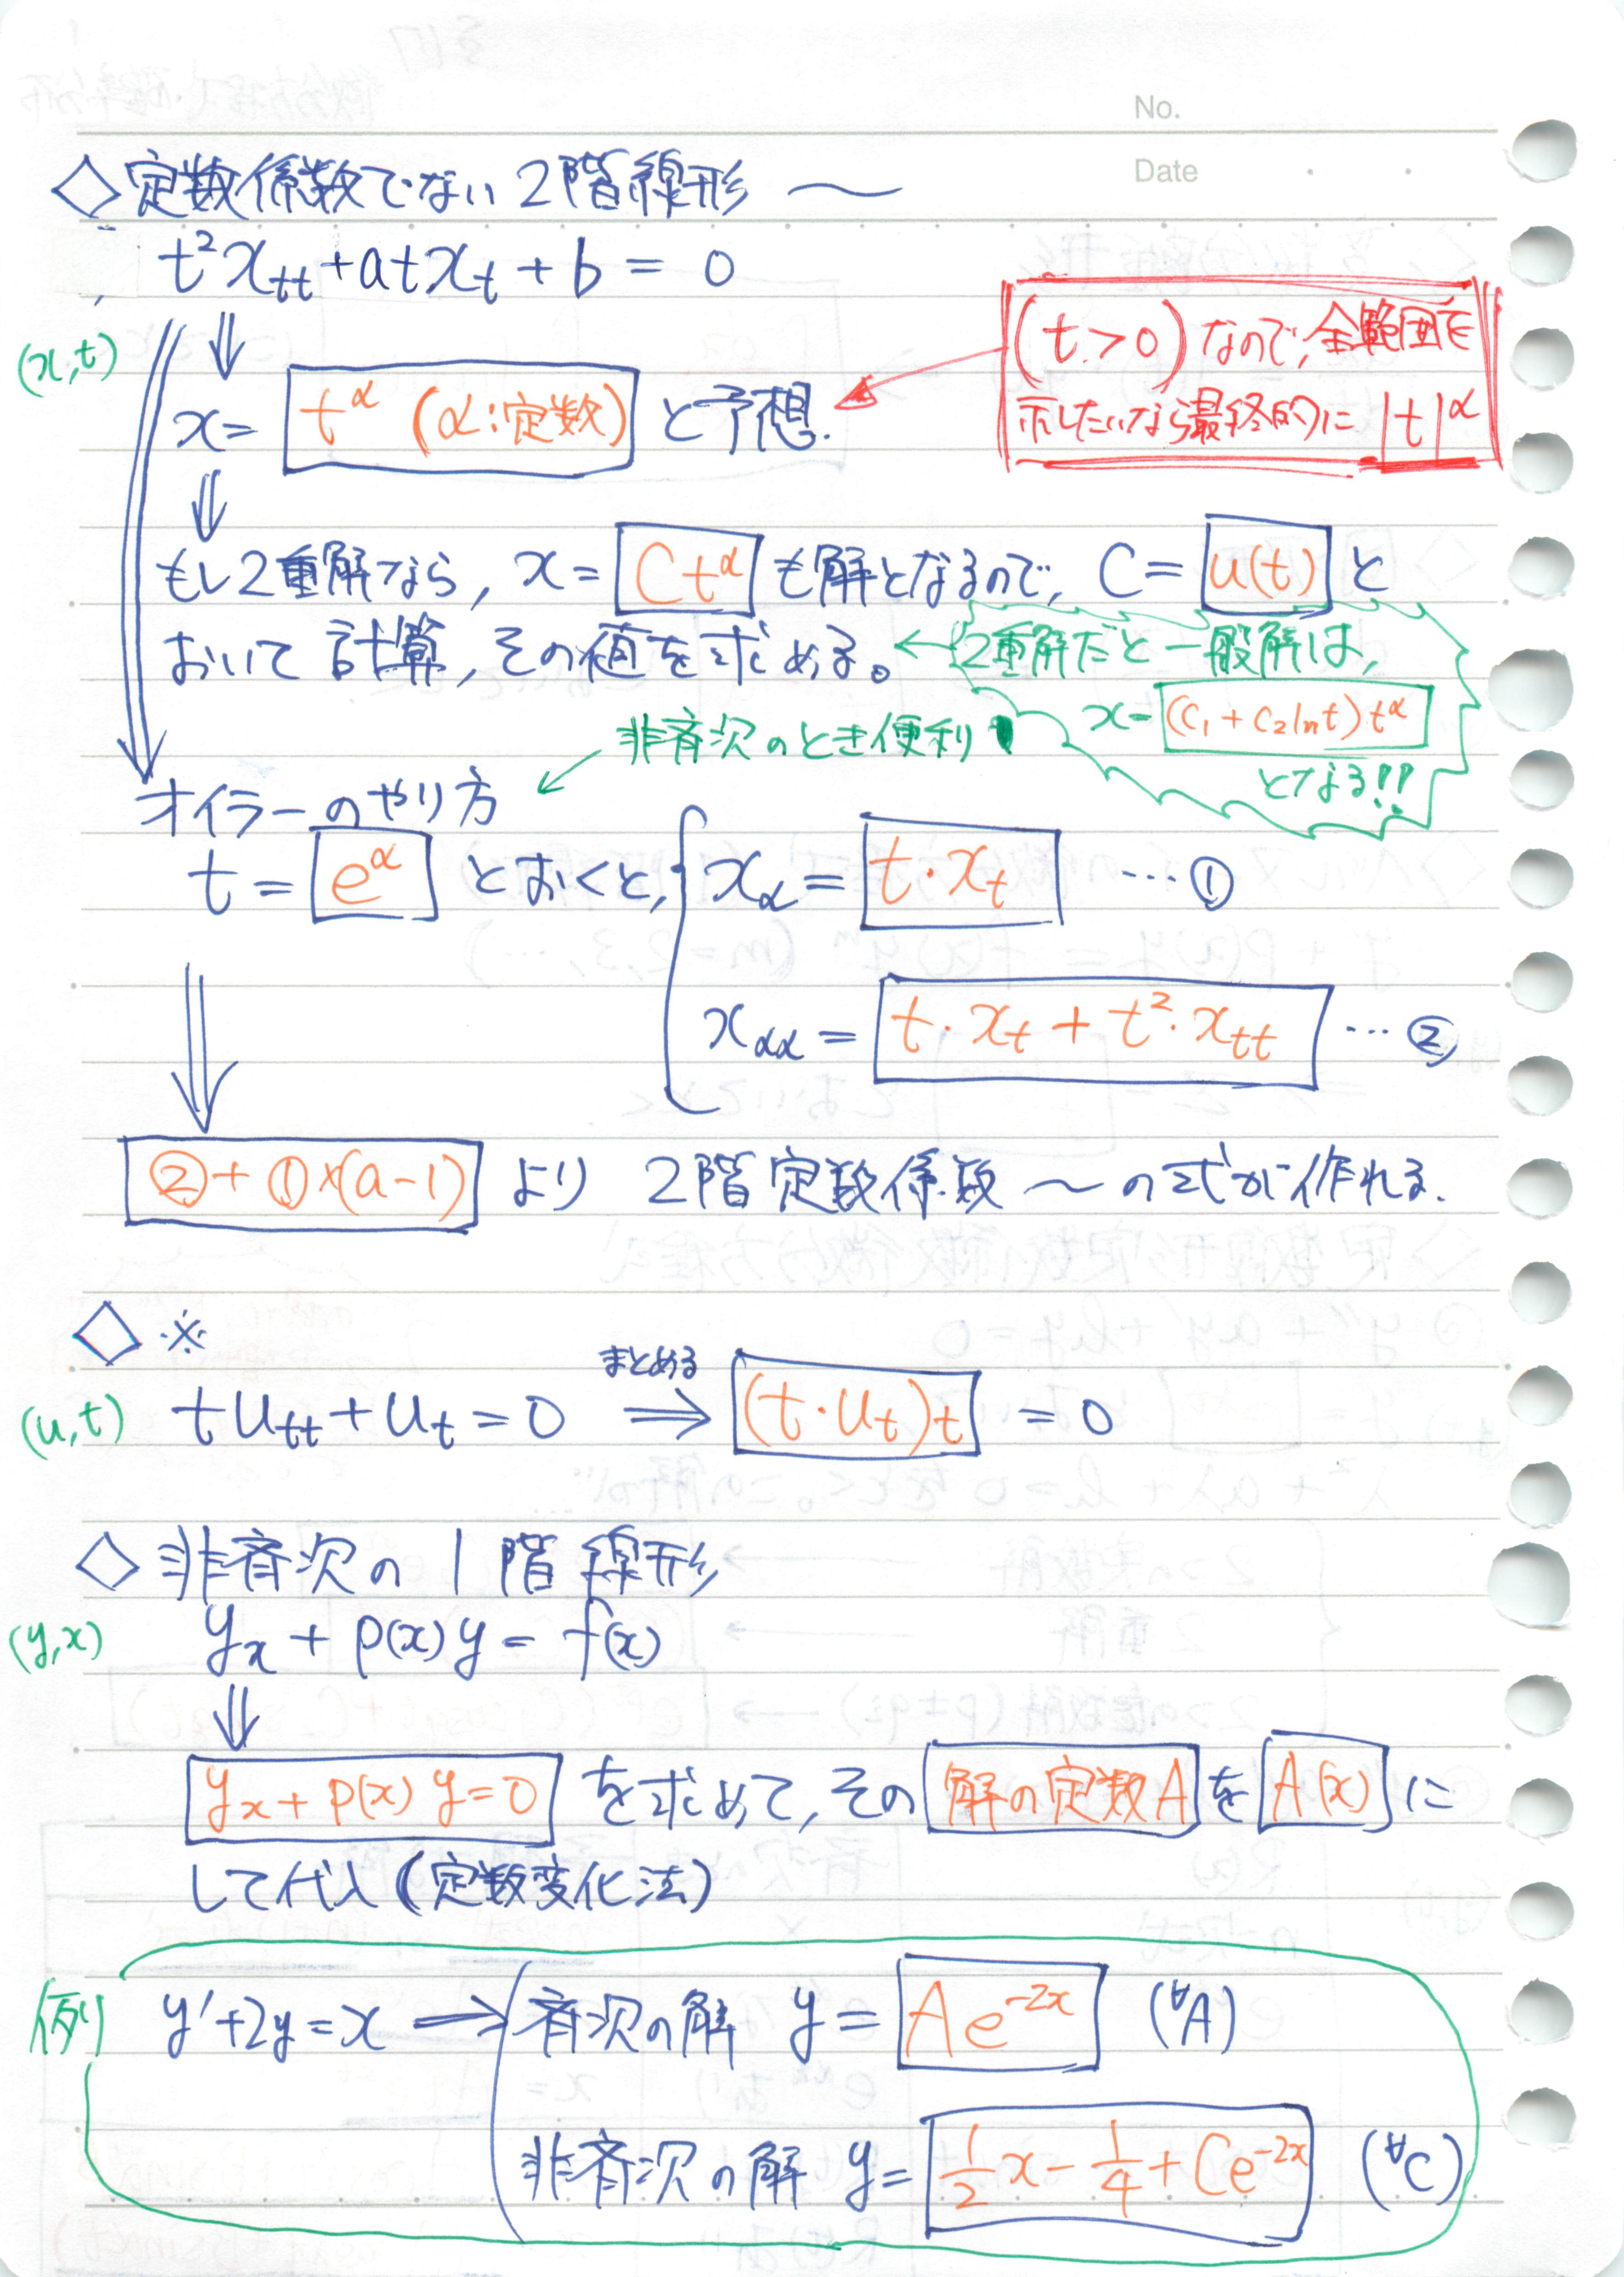 No.
Date
◇定数係数でない2階線形 〜
t²x_tt + atx_t + b = 0
(x,t)
⇓
x = t^α (α:定数) と予想.
(t>0)なので,全範囲を
示したいなら最終的に |t|^α
⇓
もし2重解なら, x = Ct^α も解となるので, C = u(t) と
おいて計算,その値を求める。
← 2重解だと一般解は,
x = (C₁ + C₂ln t)t^α
となる!!
非斉次のとき便利
オイラーのやり方
t = e^α とおくと, x_α = t・x_t …①
x_αα = t・x_t + t²・x_tt …②
②+①×(a-1) より 2階定数係数〜の式が作れる.
◇ ※
(u,t) tu_tt + u_t = 0 まとめる ⇒ (t・u_t)_t = 0
◇ 非斉次の1階線形
(y,x) y_x + P(x)y = f(x)
⇓
y_x + P(x)y = 0 を求めて,その 解の定数A を A(x) に
して代入(定数変化法)
例) y'+2y=x → 斉次の解 y = Ae^{-2x} (∀A)
非斉次の解 y = 1/2 x - 1/4 + Ce^{-2x} (∀C)